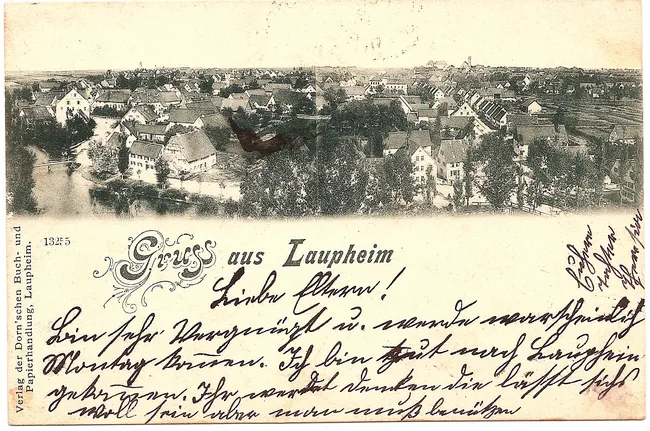 13255
Gruss aus Laupheim
Verlag der Dorn'schen Buch- und
Papierhandlung, Laupheim.
Liebe Eltern!
Bin sehr Vergnügt u. werde warscheinlich
Montag kommen. Ich bin gut nach Laupheim
gekommen. Ihr werdet denken die lässt sichs
woll sein aber man muß benützen